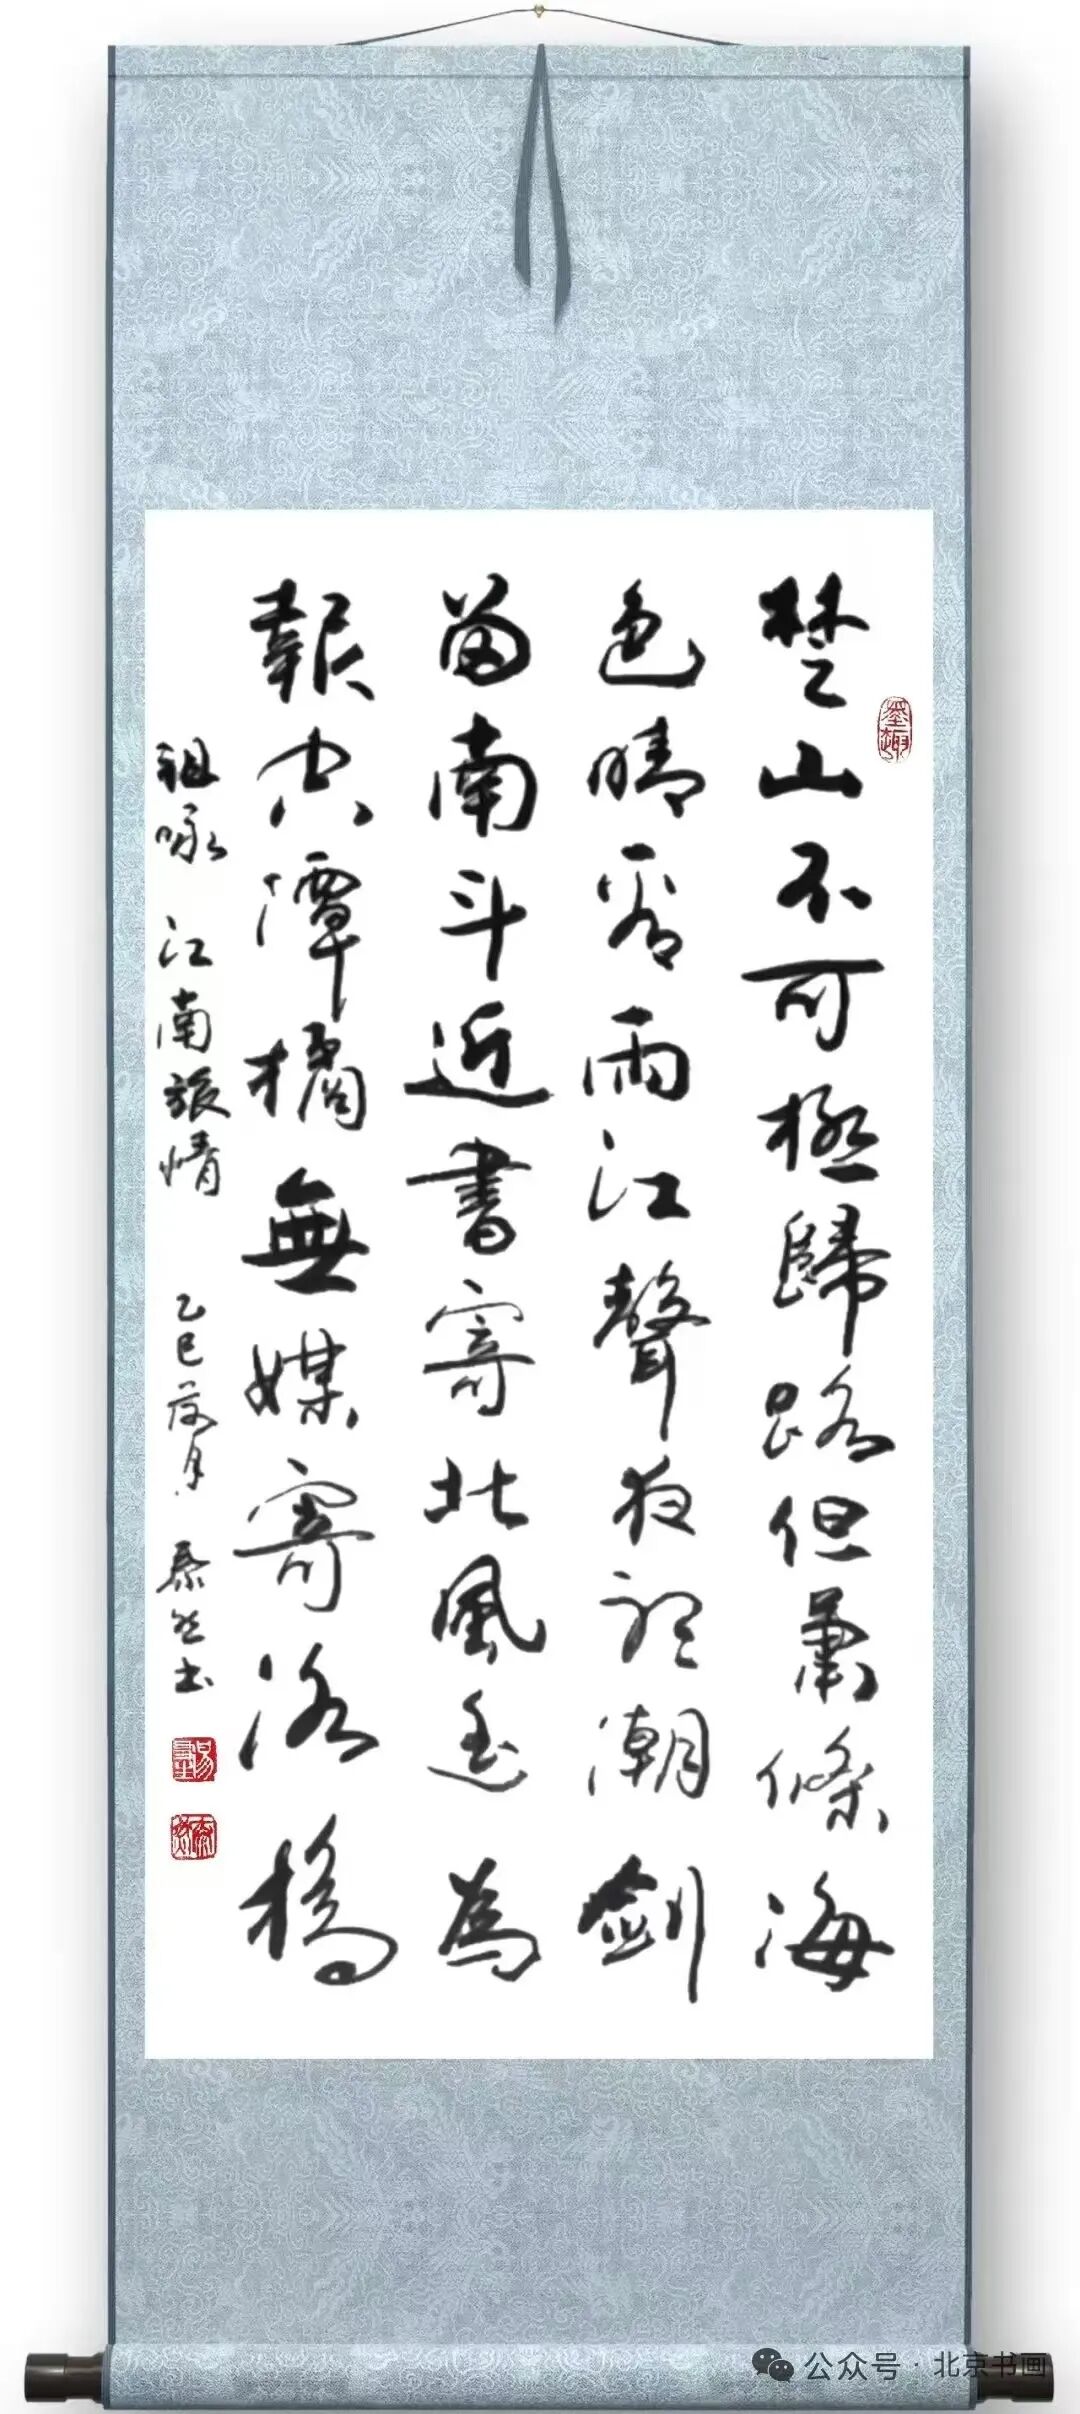 楚山不可極歸路但蕭條海
色晴看雨江聲夜聽潮劍
留南斗近書寄北風遙為
報空潭橘無媒寄洛橋
祖咏 江南旅情 乙巳 月 泰然书
墨趣
公众号 · 北京书画